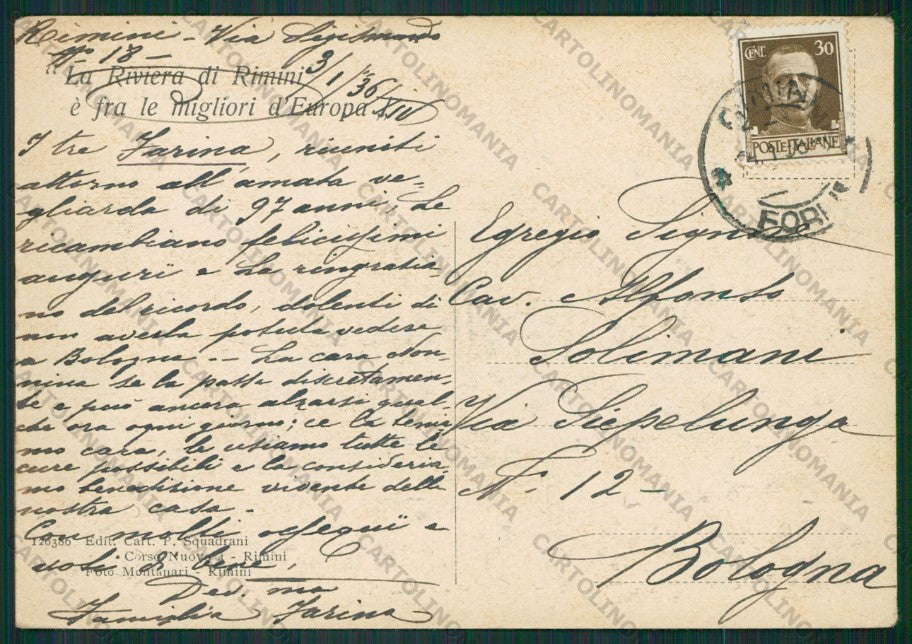 Rimini - Via Sigismondo
No 18 -
3/1 36 XIV
"La Riviera di Rimini
è fra le migliori d'Europa"
I tre Farina, riuniti
attorno all'amata ve-
gliarda di 97 anni, Le
ricambiano felicissimi
auguri e La ringrazia
no del ricordo, dolenti di
non averla potuta vedere
a Bologna -- La cara Non-
nina se la passa discretamen-
te e può ancora alzarsi qual-
che ora ogni giorno; ce la tenia
mo cara, le usiamo tutte le
cure possibili e la consideria-
mo benedizione vivente della
nostra casa -
Con molti ossequii e
voti di bene,
Dev. ma
Famiglia Farina
126386 Edit. Cart. P. Squadrani
Corso Nuovo 4 - Rimini
Foto Montanari - Rimini
CENT. 30
POSTE ITALIANE
RIMINI
FORLI
Egregio Signor
Cav. Alfonso
Solimani
Via Siepelunga
N. 12 -
Bologna
CARTOLINOMANIA